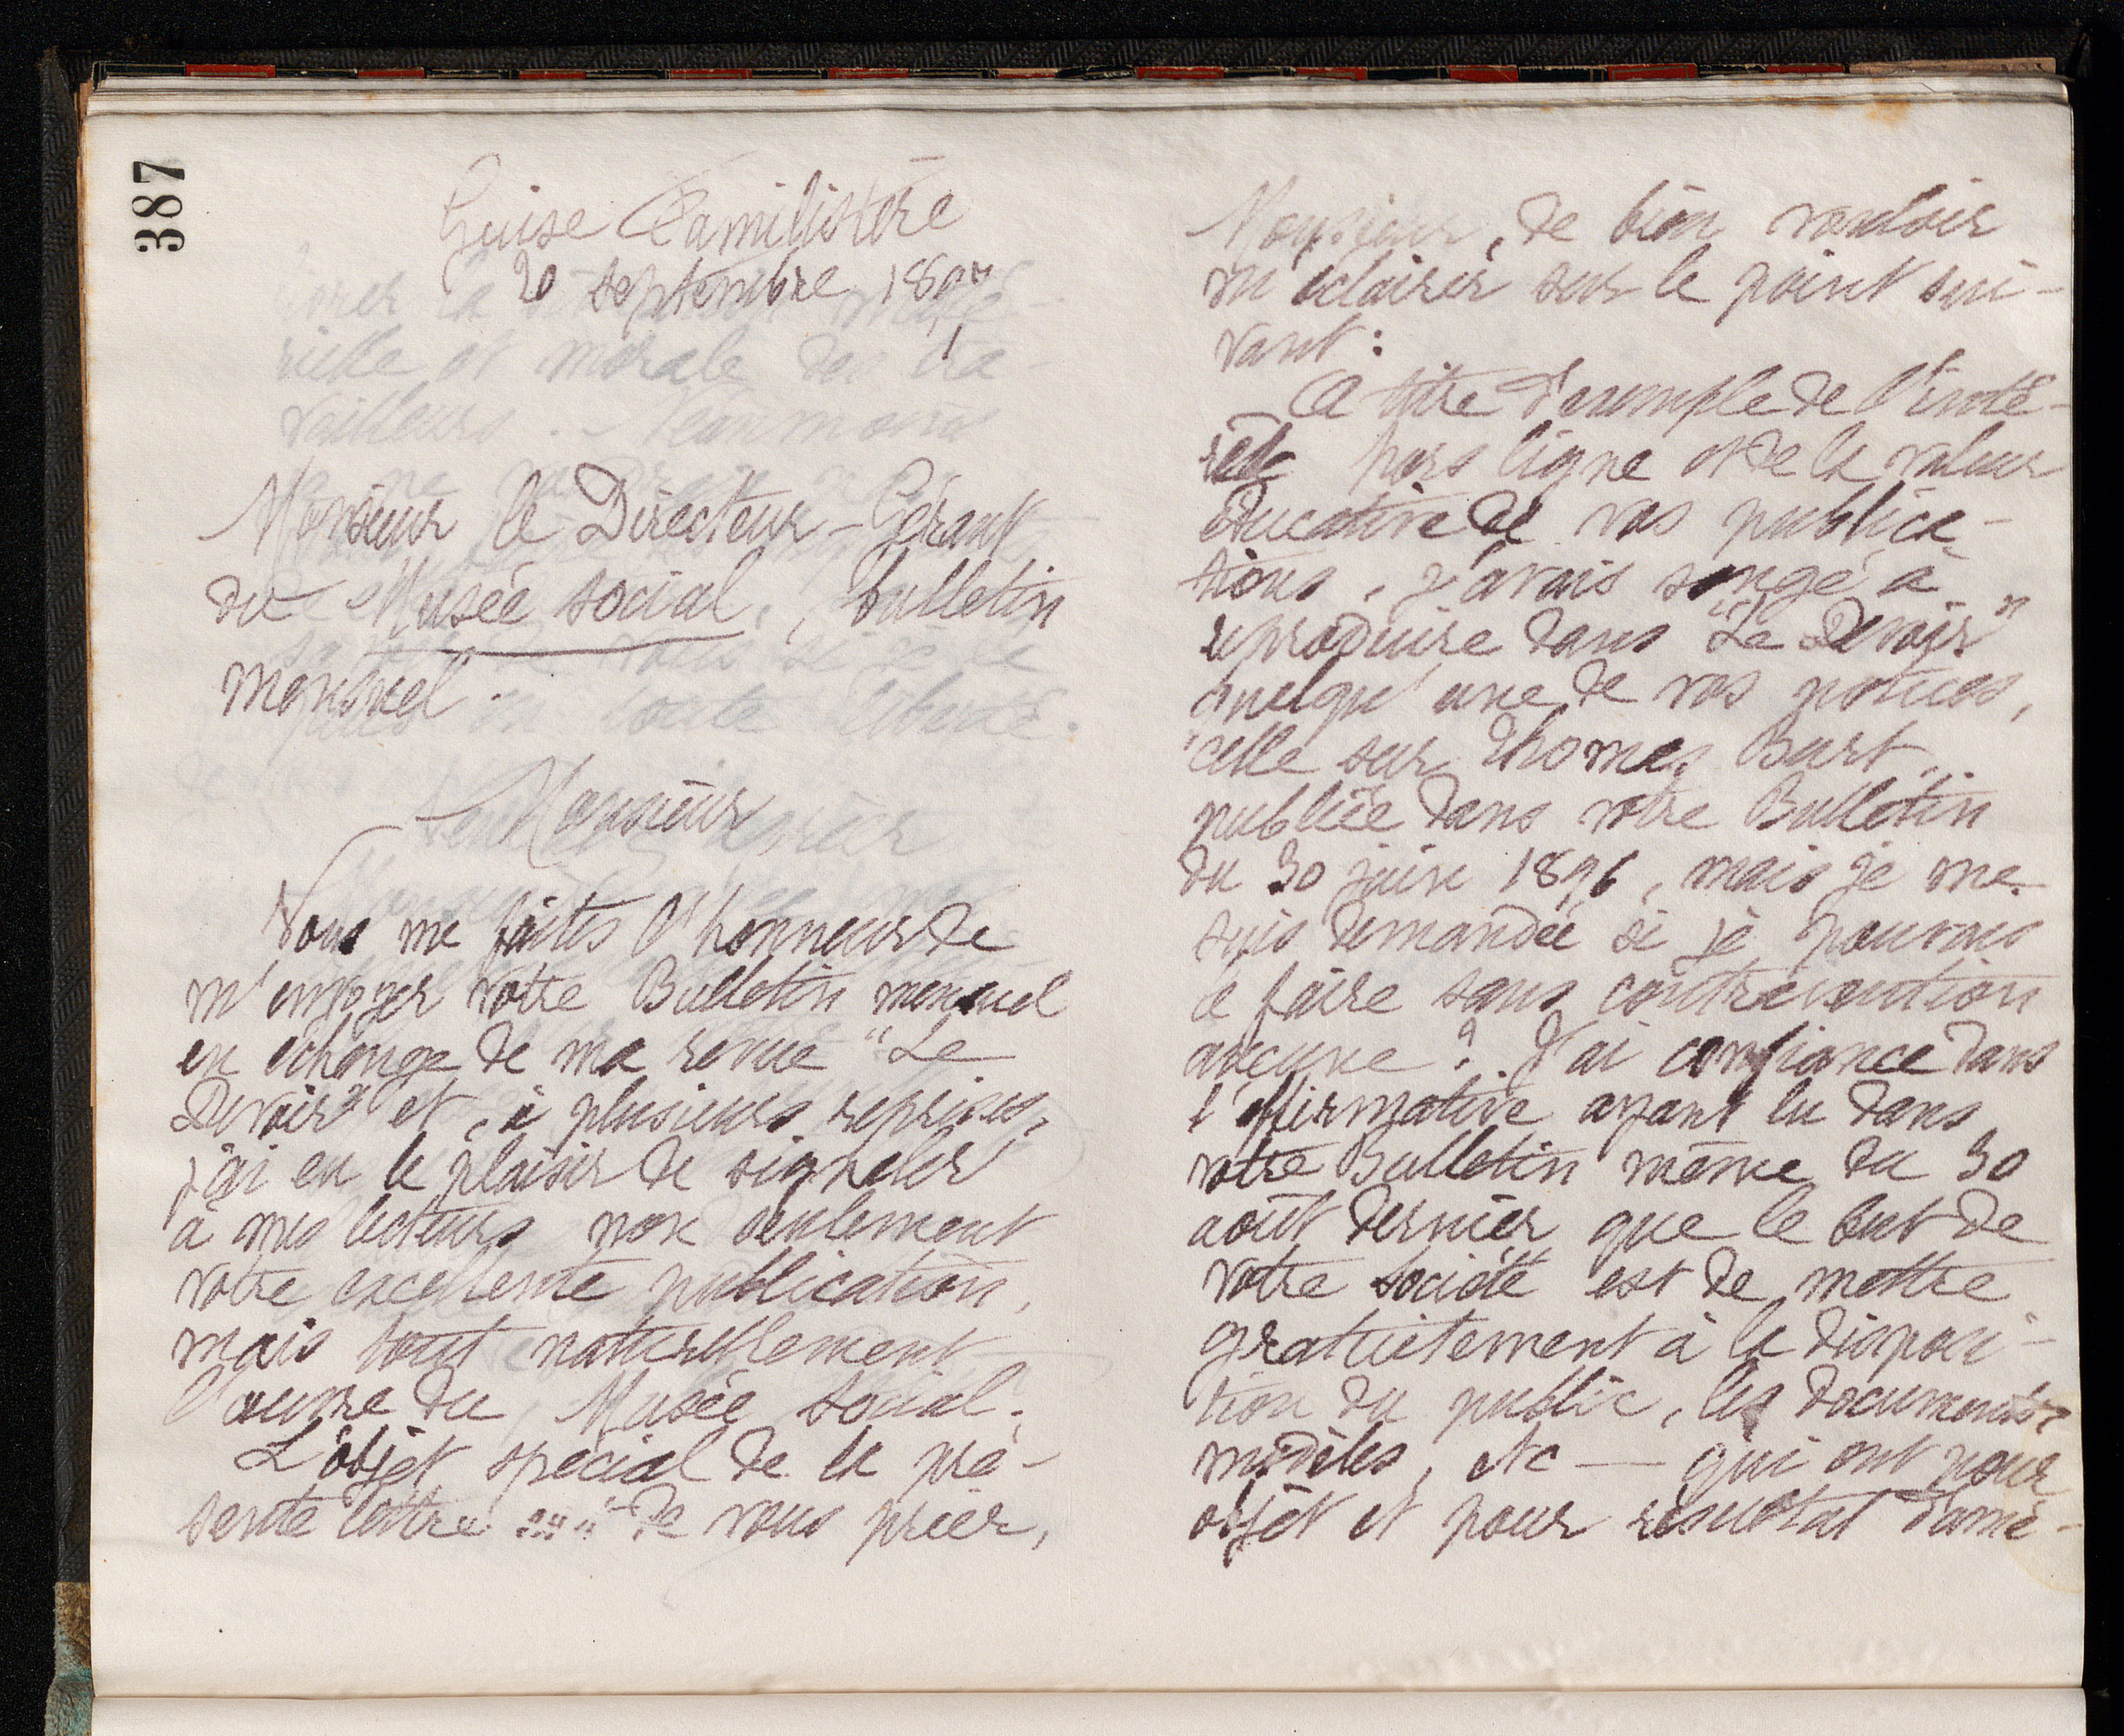 387
Guise Familistère
20 septembre 1897
Monsieur le Directeur-Gérant
du Musée social, bulletin
mensuel.
Monsieur
Vous me faites l'honneur de
m'envoyer votre Bulletin mensuel
en échange de ma revue "Le
Devoir" et, à plusieurs reprises,
j'ai eu le plaisir de signaler
à mes lecteurs non seulement
votre excellente publication,
mais tout naturellement
l'œuvre du Musée social.
L'objet spécial de la pré-
sente lettre est de vous prier,
Monsieur, de bien vouloir
m'éclairer sur le point sui-
vant :
A titre d'exemple de l'inté-
rêt hors ligne et de la valeur
éducative de vos publica-
tions, j'avais songé à
reproduire dans "Le Devoir"
quelqu'une de vos notices,
celle sur Thomas Burt,
publiée dans votre Bulletin
du 30 juin 1896, mais je me
suis demandée si je pouvais
le faire sans contravention
aucune ? J'ai confiance dans
l'affirmative ayant lu dans
votre Bulletin même du 30
août dernier que le but de
votre société est de mettre
gratuitement à la disposi-
tion du public, les documents,
modèles, etc — qui ont pour
objet et pour résultat d'amé-